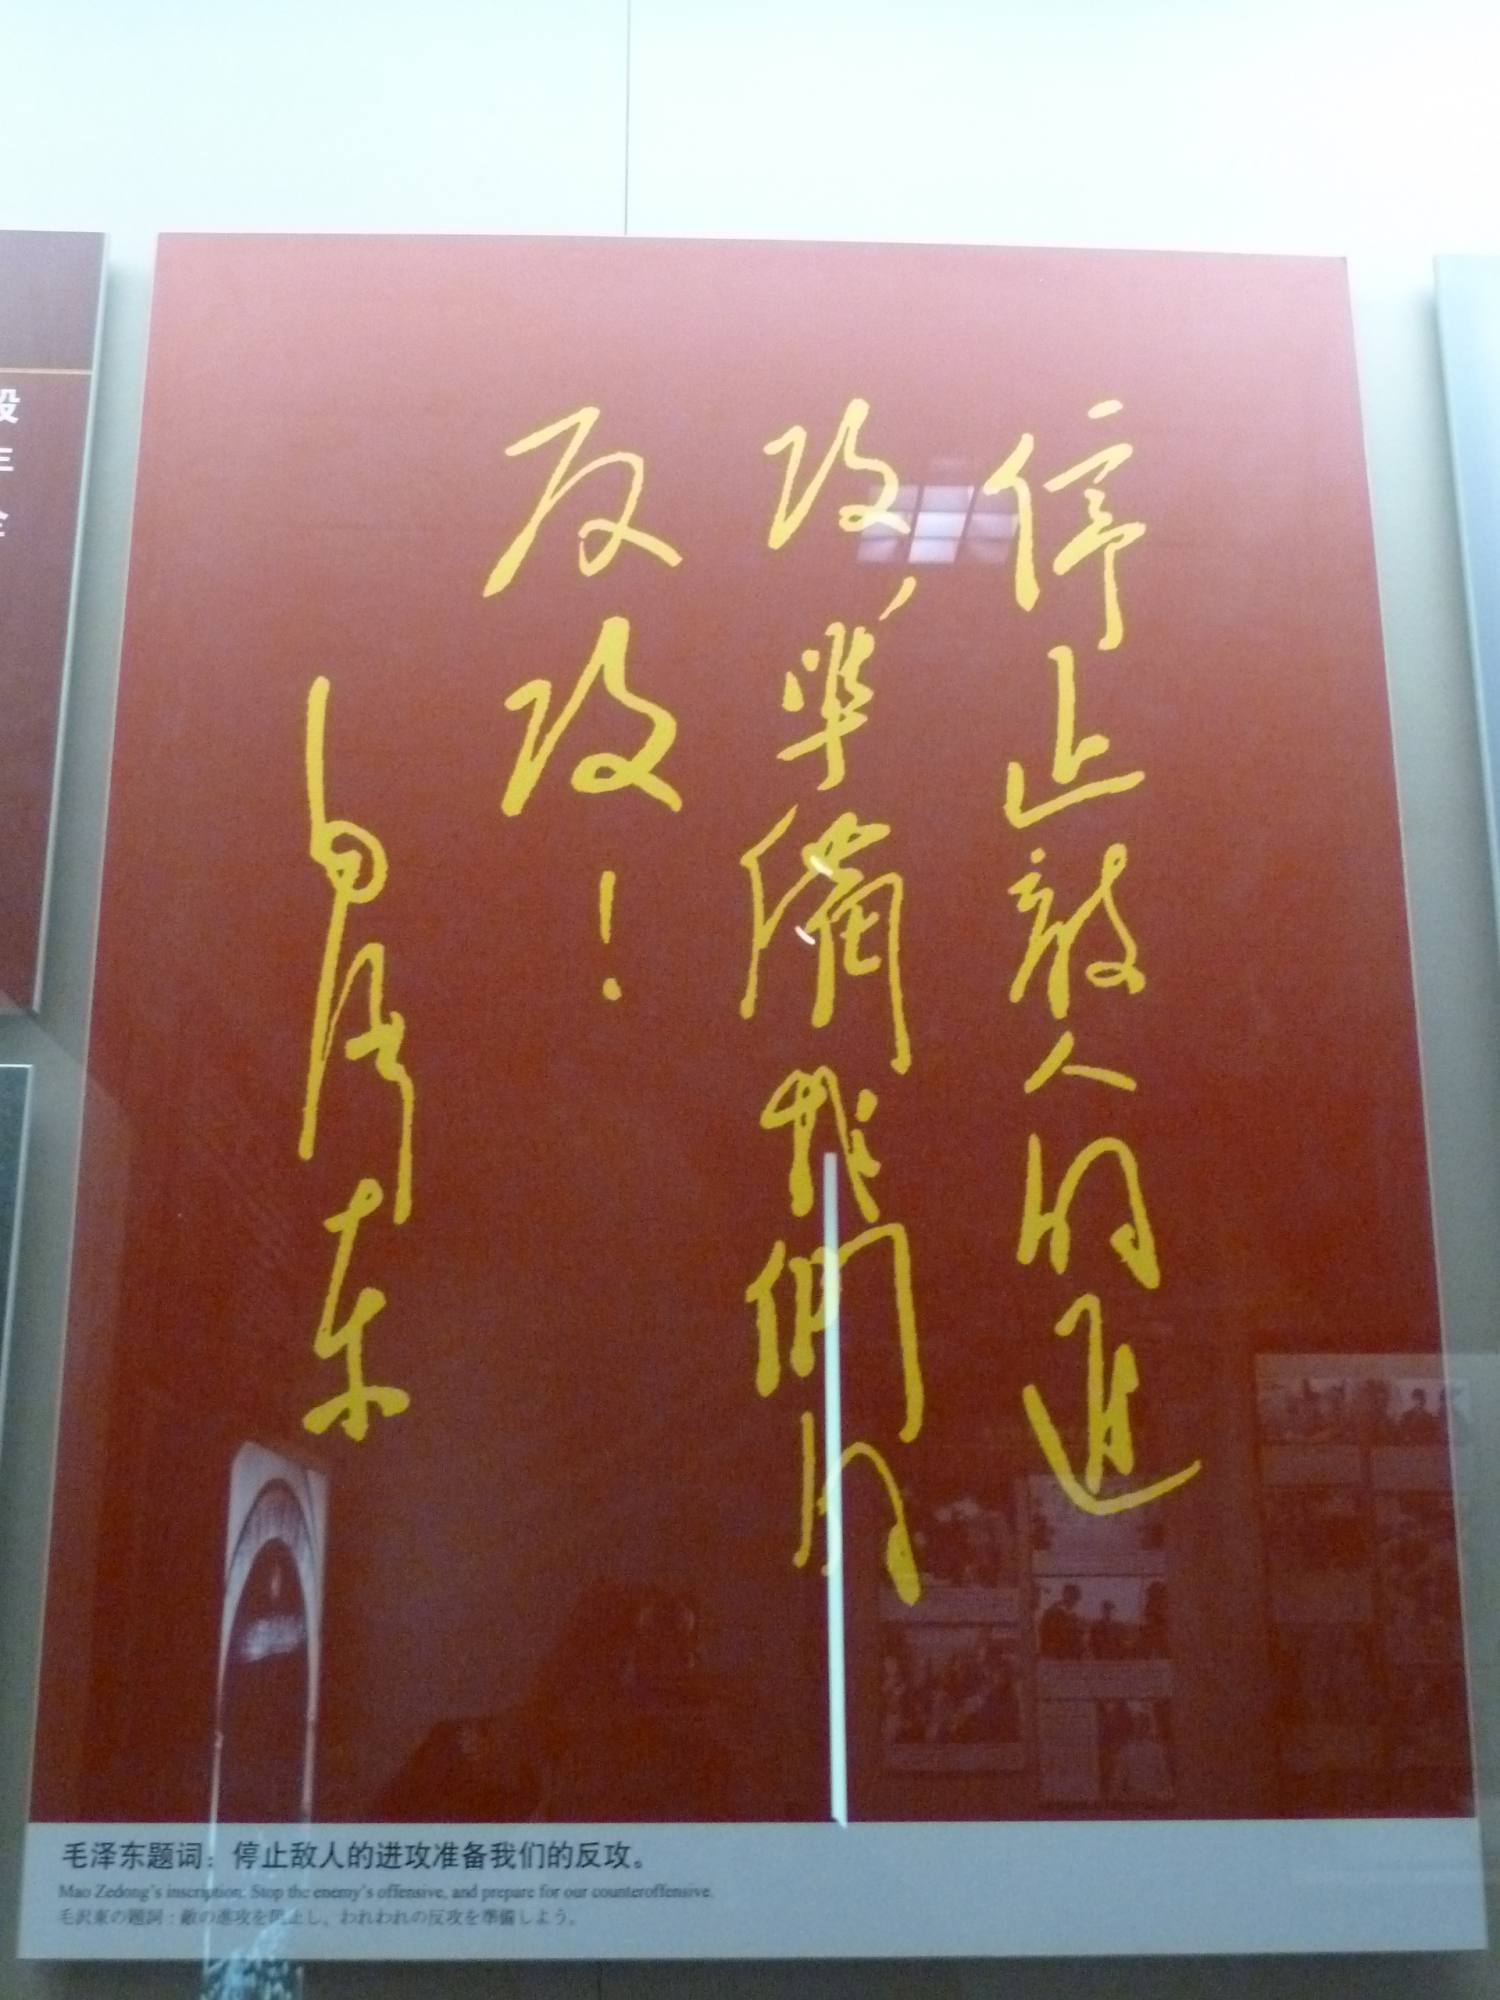 停止敌人的進
攻，準備我們的
反攻！
毛泽东
毛泽东题词：停止敌人的进攻准备我们的反攻。
Mao Zedong's inscription: Stop the enemy's offensive, and prepare for our counteroffensive.
毛沢東の題詞：敵の進攻を阻止し、われわれの反攻を準備しよう。